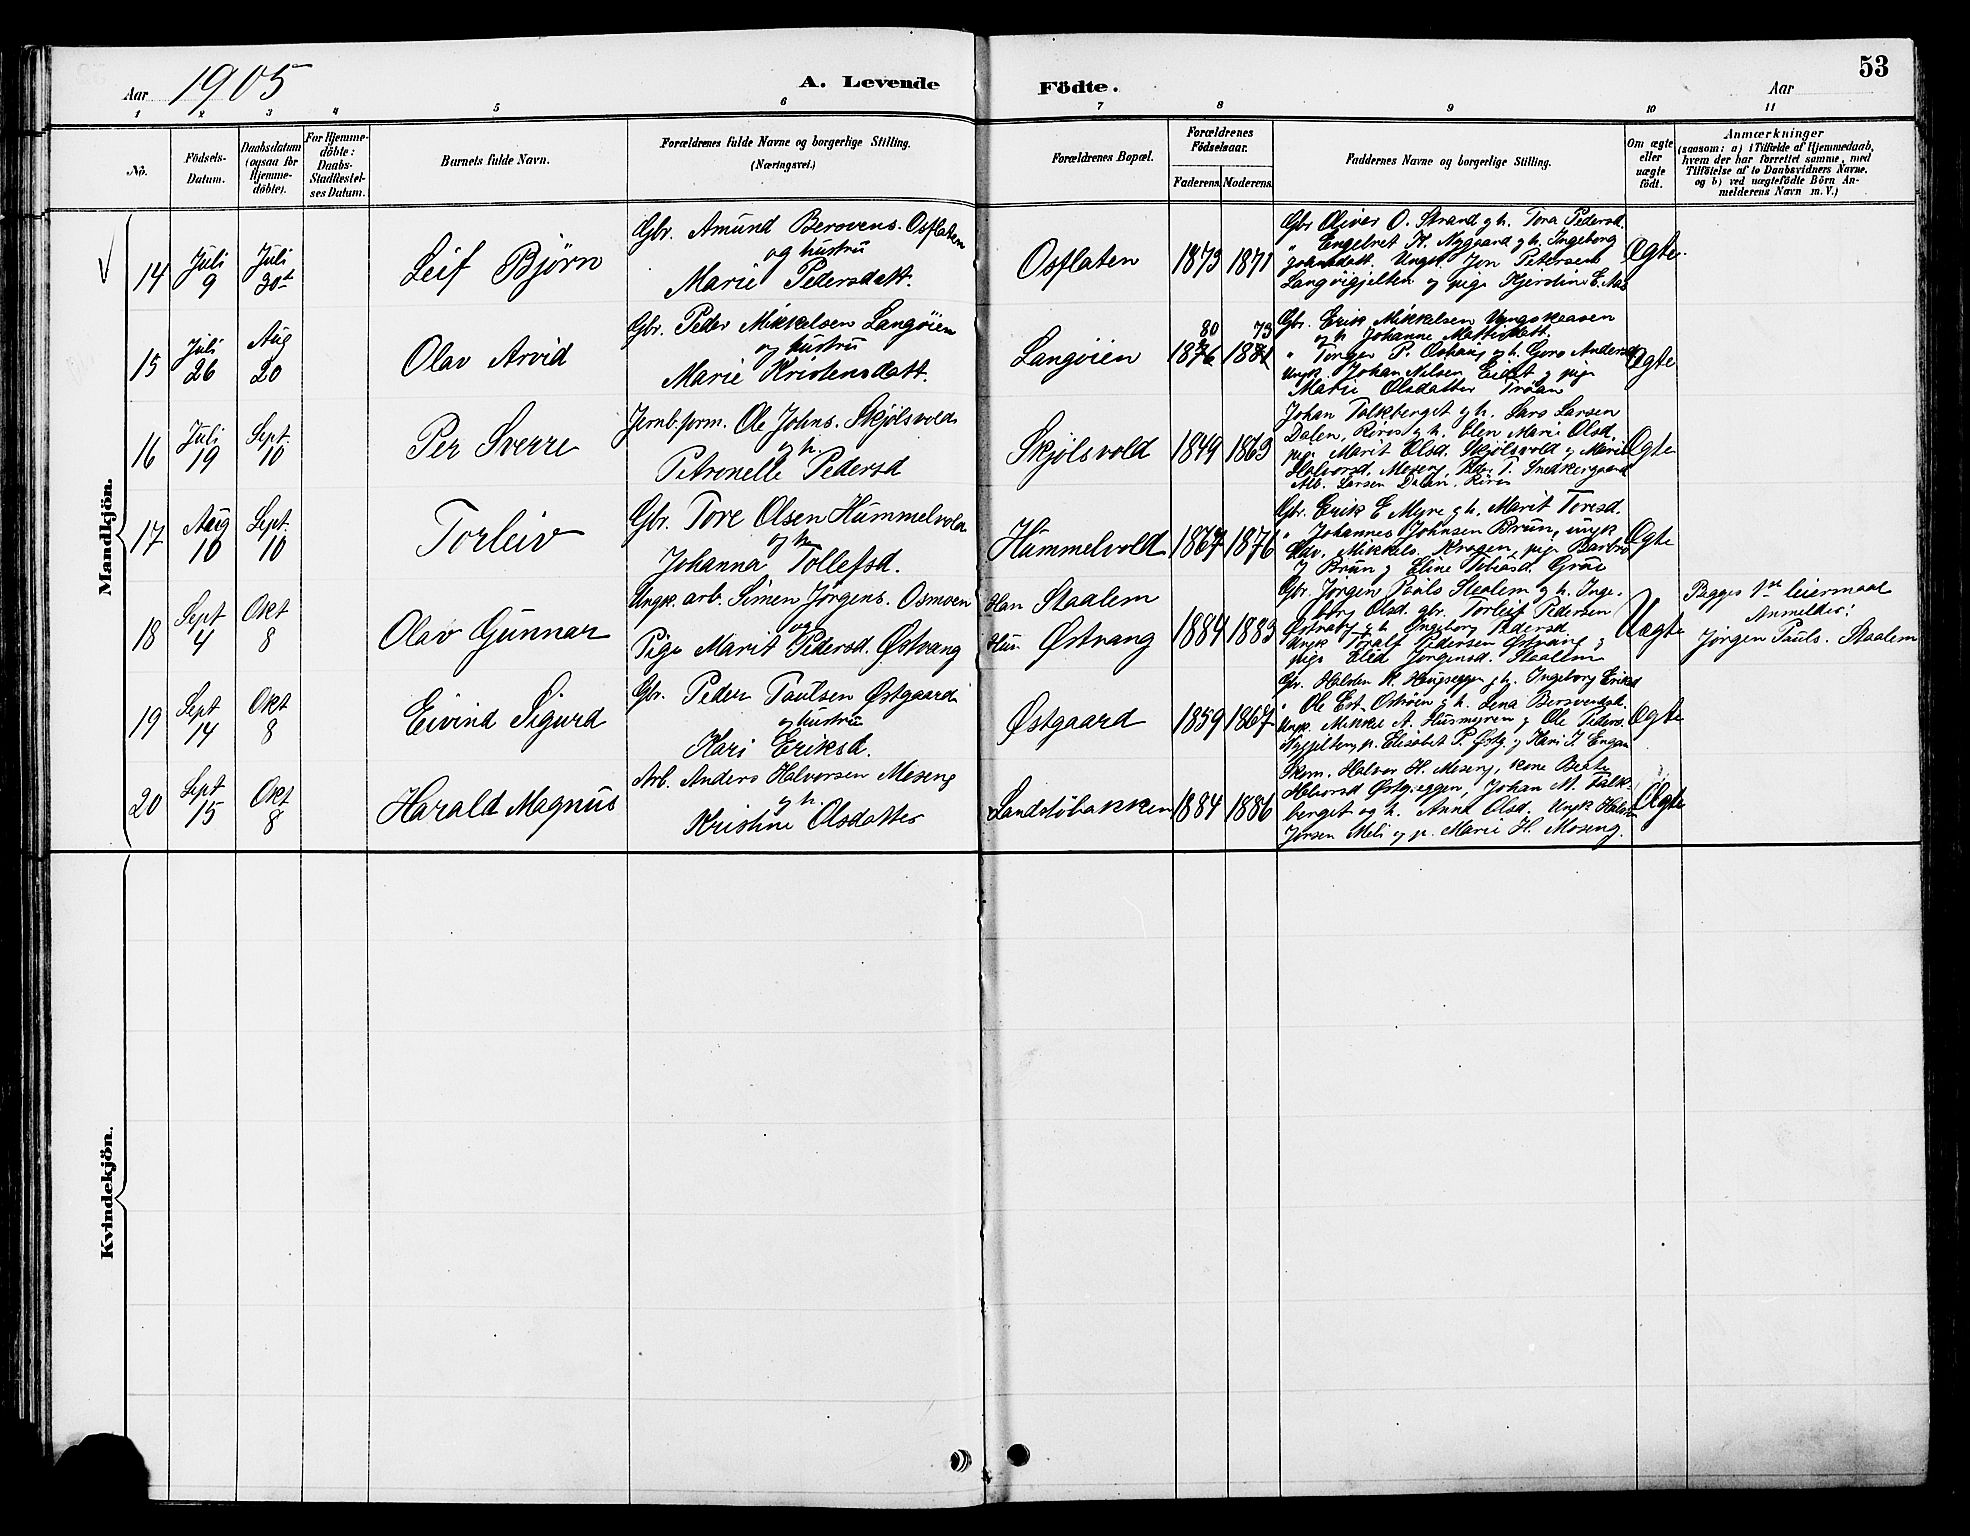 53
Aar 1905 A. Levende Födte. Aar
1 2 3 4 5 6 7 8 9 10 11
No.
Födsels-
Datum.
Daabsdatum
(ogsaa for
Hjemme-
döbte).
For Hjemme-
döbte:
Daabs-
Stadfæstel-
ses Datum.
Barnets fulde Navn.
Forældrenes fulde Navne og borgerlige Stilling.
(Næringsvei.)
Forældrenes Bopæl.
Forældrenes
Födselsaar.
Faderens. Moderens.
Faddernes Navne og borgerlige Stilling.
Om ægte
eller
uægte
födt.
Anmærkninger
(saasom: a) i Tilfælde af Hjemmedaab,
hvem der har forrettet samme, med
Tilföielse af to Daabsvidners Navne,
og b) ved uægtefödte Börn An-
melderens Navn m. V.)
Mandkjön.
14
Juli
9
Juli
30te
Leif Bjørn
Gbr. Amund Berovens. Osflaten
og hustru
Marie Pedersdatt.
Osflaten
1873 1871
Gbr Oliver O. Strand og h. Tora Pedersd.
" Engebret H. Nygaard og h. Ingeborg
Johnsdatt. Ungk. Jon Petersen
og pige Kjerstine E.
Ægte
15
Juli
26
Aug
20
Olav Arvid
Gbr. Peder Mikkelsen Langøien
og hustru
Marie Kristensdatt.
Langøien
80 73
1876 1881
Gbr. Erik Mikkelsen
og h Johanne
" P. og h. Goro Andersd
Ungk. Johan Nilsen Eidet og pige
Marie Olsdatter Trøan
Ægte
16
Juli
19
Sept.
10
Per Sverre
Jernb.form. Ole Johns. Skjølsvold
og h.
Petronelle Pedersd
Skjølsvold
1849 1863
Johan Falkberget og h. Lars Larsen
Dalen, Røros og h. Elen Marie Olsd.
pige Marit Olsd. Skjølsvold og Marie
Halvorsd. Moseng, T. Snedkergaard
Alb. Larsen Dalen, Røros
Ægte
17
Aug
10
Sept.
10
Torleiv
Gbr. Tore Olsen Hummelvold
og h
Johanna Tollefsd.
Hummelvold
1867 1876
Gbr. Erik E Myre og h. Marit Toresd.
" Johannes Johnsen Brun, ungk
Edv. Mikkels. Krogen, pige Barbro
J Brun og Eline Tobiasd. Grue
Ægte
18
Sept
4
Okt
8
Olav Gunnar
Ungk. arb. Simen Jørgens. Osmoen
og
Pige Marit Pedersd. Østvang
Han Staalem
Hun Østvang
1884 1883
Gbr. Jørgen Pauls Staalem og h. Inge-
borg Olsd. gbr. Torleif Pedersen
og h. Ingeborg Pedersd.
Ungk Toralf Pedersen Østvang og
pige Elid Jørgensd. Staalem
Uægte
Begges 1ste leiermaal
Anmelder:
Jørgen Pauls. Staalem
19
Sept
14
Okt
8
Eivind Sigurd
Gbr. Peder Paulsen Østgaard
og hustru
Kari Eriksd.
Østgaard
1859 1867
Gbr. Halsten K. og h. Ingeborg Eriksd
" Ole Est. og h. Lena Bersvendsd.
Ungk. Mikkel A. Husmyren og Ole Peders.
p. Elisabet P. Østg. og Kari J. Engan
Ægte
20
Sept
15
Okt
8
Harald Magnus
Arb. Anders Halvorsen Moseng
og h.
Kristine Olsdatter
Sandstøbakken
1884 1886
Skom. Halvor H. Moseng, kone Beate
Halvorsd Østgjeggen, Johan M. Falk-
berget og h. Anna Olsd. Ungk
Jørsen Meli og p. Marie H. Moseng.
Ægte
Kvindekjön.